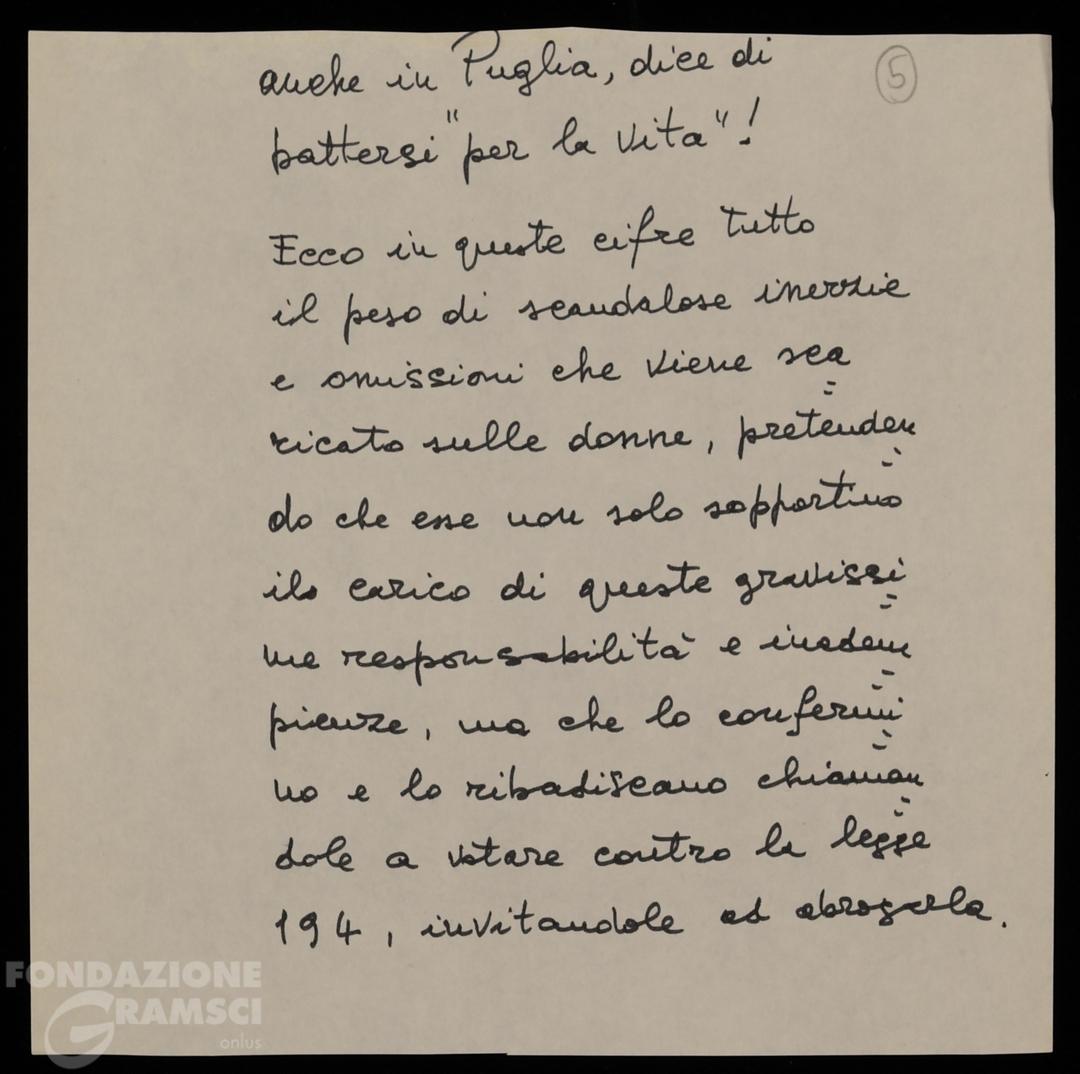 anche in Puglia, dice di
5
battersi "per la vita"!
Ecco in queste cifre tutto
il peso di scandalose inerzie
e omissioni che viene sca=
ricato sulle donne, pretenden=
do che esse non solo sopportino
il carico di queste gravissi=
me responsabilità e inadem=
pienze, ma che lo confermi=
no e lo ribadiscano chiaman=
dole a votare contro la legge
194, invitandole ad abrogarla.
FONDAZIONE
GRAMSCI
onlus